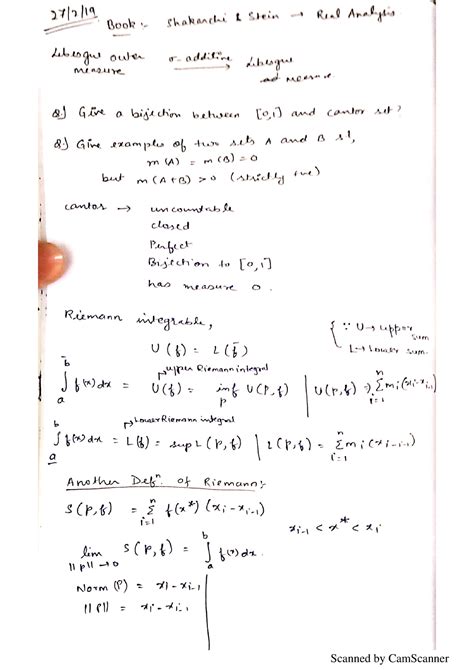 27/2/19
Book:- Shakarchi & Stein → Real Analysis
Lebesgue outer measure σ-additive Lebesgue measure
Q.) Give a bijection between [0,1] and cantor set?
Q.) Give examples of two sets A and B st,
m(A) = m(B) = 0
but m(A+B) > 0 (strictly +ve)
cantor → uncountable
closed
Perfect
Bijection to [0,1]
has measure 0.
Riemann integrable,
U(f) = L(f)
{ ∵ U → upper sum
L → Lower sum.
→ upper Riemann integral
∫ₐᵇ̄ f(x)dx = U(f) = inf_P U(P,f) | U(P,f) = Σᵢ₌₁ⁿ mᵢ(xᵢ-xᵢ₋₁)
→ Lower Riemann integral
∫ₐ̲ᵇ f(x)dx = L(f) = sup L(P,f) | L(P,f) = Σᵢ₌₁ⁿ mᵢ(xᵢ-xᵢ₋₁)
Another Defⁿ. of Riemann:-
S(P,f) = Σᵢ₌₁ⁿ f(x*) (xᵢ-xᵢ₋₁)
xᵢ₋₁ < x* < xᵢ
lim_||P||→0 S(P,f) = ∫ₐᵇ f(x)dx.
Norm (P) = xᵢ-xᵢ₋₁
||P|| = xᵢ-xᵢ₋₁
Scanned by CamScanner